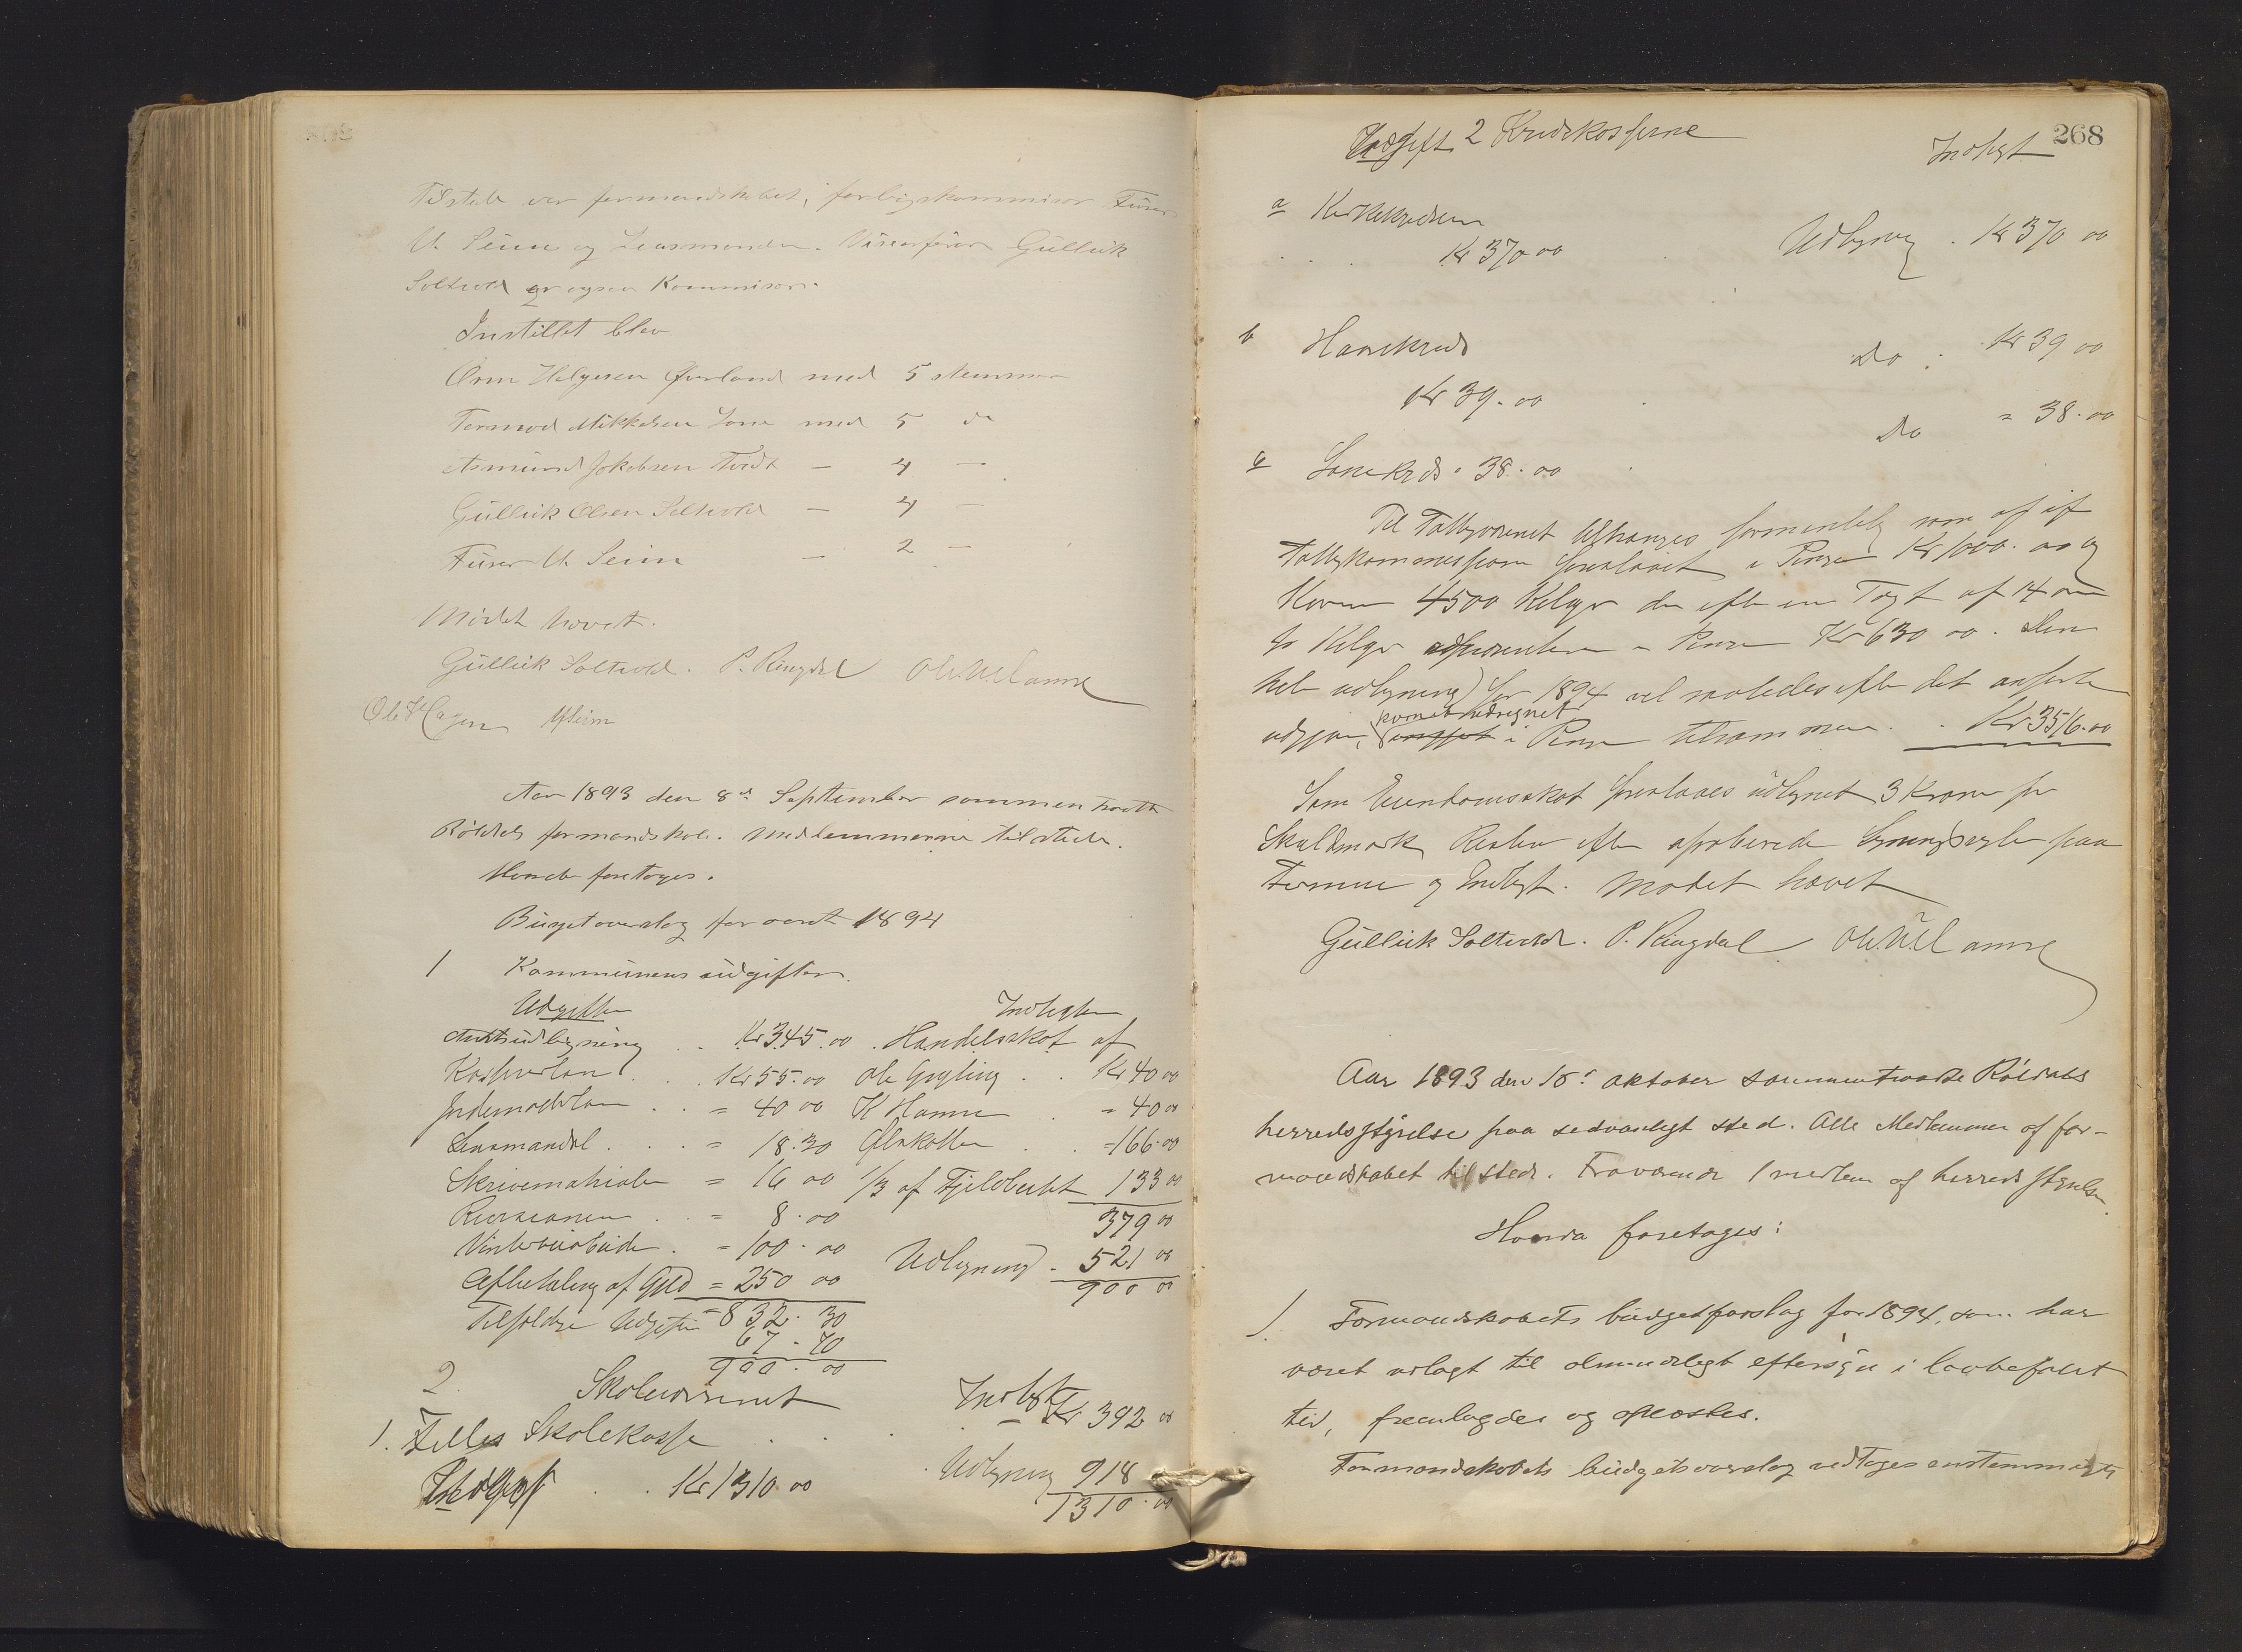 Tilstede var formandskabet, forligskommisær Funer
U. Seim og Lensmanden. Viseorfører Gullik
Soltvold er ogsaa Kommisær.
Instillet blev
Orm Helgesen med 5 stemmer
Tormod Mikkelsen Lone med 5 do
Asmund Jakobsen Tvedt — 4 —
Gullik Olsen Soltvold — 4 —
U. Seim — 2 —
Mødet hævet.
Gullik Soltvold. P. Ringdal
Ole
Aar 1893 den 8de September sammentraadte
Røldals formandskab. Medlemmerne tilstede.
Hvorda foretoges.
Budgetoverslag for aaret 1894
1 Kommunens udgifter.
Udgifter Indtægter
Amtsudligning . . Kr 345.00 . Handelsskat af
Kasserløn . . Kr 55.00 Ole Gryting . . Kr 40 00
Jordemoderløn . . = 40 00 K Hamre . = 40 00
. . = 18.30 . . =166.00
Skrivematrialer = 16 00 1/3 af Fjeldbeitet 133 00
Revisionen . . = 8.00 379 00
. = 100.00 Udligning - 521 00
Afbetaling af Gjeld = 250 00 900 00
Tilfeldige Udgifter = 832.30
67.70
900.00
2. Skolevæsenet Indtegt Kr 392 00
1. Felles Skolekasse . . .
Udgift . . Kr 1310 00 Udligning 918
1310.00
268
Udgift 2 Kredskasserne Indtegt
a Kirkekredsen
Kr 370 00 Udligning . Kr 370 00
b Horekreds Do : Kr 39 00
Kr 39.00
Do = 38.00
c Lonekreds = 38.00
Til Fattigvæsenet udfranges formentlig som af
Fattigkommissionen foreslaaet i Penge Kr 1000.00 og
Korn 4500 Kilogr der efter en Taxt af 14 øre
pr Kilogr i Penge Kr 630 00. Den
hele udligning for 1894 vil saaledes efter det anførte
udgjøre, kornet udregnet i Penge tilsammen . . Kr 3516.00
Som Eiendomsskat foreslaaes udlignet 3 Kroner pr
Skuldmark Resten efter aproberede Ligningsregler paa
Formue og Indtegt. Mødet hævet
Gullik Soltvold. P. Ringdal
Aar 1893 den 18de oktober sammentraadte Røldals
herredsstyrelse paa sedvanligt sted. Alle Medlemmer af for-
mandskabet tilstede. Fraværende 1 medlem af herredsstyrelsen.
Hvorda foretoges:
1. Formandskabets budgetforslag for 1894, som har
været udlagt til almindeligt eftersyn i lovbefalet
tid, fremlagdes og oplæstes.
Formandskabets budgetsoverslag vedtoges enstemmigt